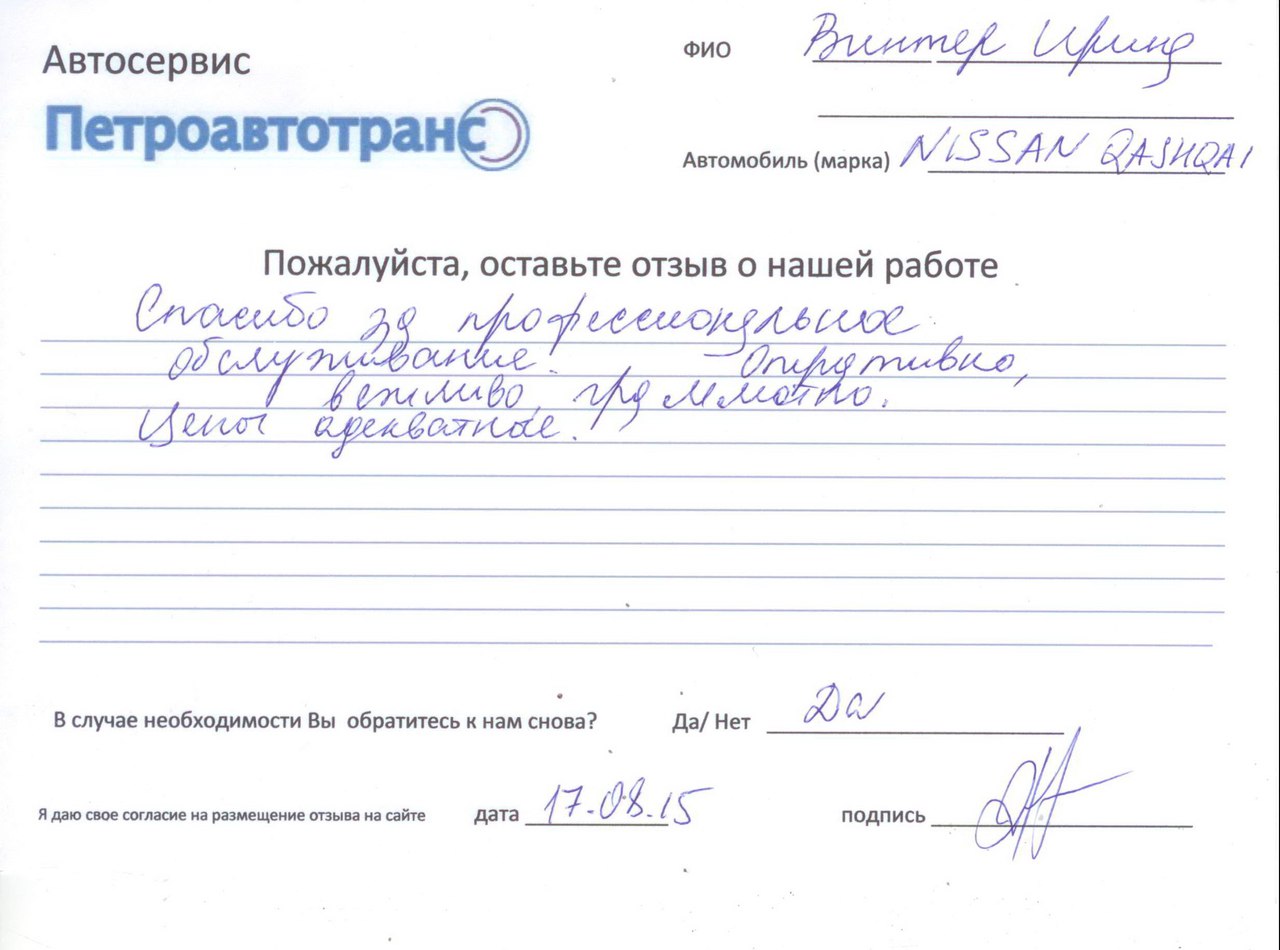 Автосервис
Петроавтотранс
ФИО Винтер Ирина
Автомобиль (марка) NISSAN QASHQAI
Пожалуйста, оставьте отзыв о нашей работе
Спасибо за профессиональное
обслуживание. Опративно,
вежливо, грамотно.
Цены адекватные.
В случае необходимости Вы обратитесь к нам снова? Да/ Нет Да
Я даю свое согласие на размещение отзыва на сайте дата 17.08.15 подпись